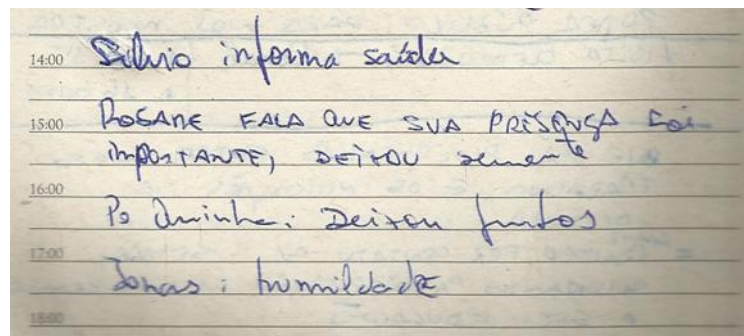 14:00 Silvio informa saída
15:00 ROSANE FALA QUE SUA PRESENÇA foi
importante, DEIXOU semente
16:00
Pe Aninha: Deixou frutos
17:00
Jonas: humildade
18:00